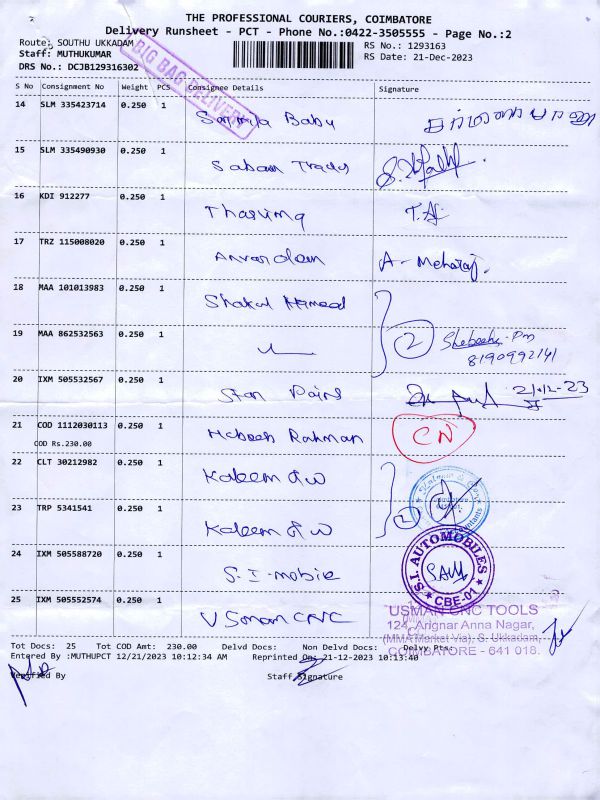 THE PROFESSIONAL COURIERS, COIMBATORE
Delivery Runsheet - PCT - Phone No.:0422-3505555 - Page No.:2
Route: SOUTHU UKKADAM
RS No.: 1293163
Staff: MUTHUKUMAR
RS Date: 21-Dec-2023
DRS No.: DCJB129316302
BIG BAG DELIVERY
S No Consignment No Weight PCS Consignee Details Signature
14 SLM 335423714 0.250 1 Baby
15 SLM 335490930 0.250 1 Sabam
16 KDI 912277 0.250 1 Tharuma
17 TRZ 115008020 0.250 1 Anvardeen A - Meharaj.
18 MAA 101013983 0.250 1 Shakul Hameed
2 Pm
8190992141
19 MAA 862532563 0.250 1
20 IXM 505532567 0.250 1 Star 21-12-23
21 COD 1112030113 0.250 1 Rahman CN
COD Rs.230.00
22 CLT 30212982 0.250 1 Kaleem
23 TRP 5341541 0.250 1 Kaleem 2
24 IXM 505588720 0.250 1 S.I-mobile
S.I. AUTOMOBILES
CBE-01
25 IXM 505552574 0.250 1 Usman CNC
USMAN CNC TOOLS
124, Arignar Anna Nagar,
(MMA Market Via), S. Ukkadam,
COIMBATORE - 641 018.
Tot Docs: 25 Tot COD Amt: 230.00 Delvd Docs: Non Delvd Docs: Delvy Pts:
Entered By :MUTHUPCT 12/21/2023 10:12:34 AM Reprinted On: 21-12-2023 10:13:40
Verified By Staff Signature